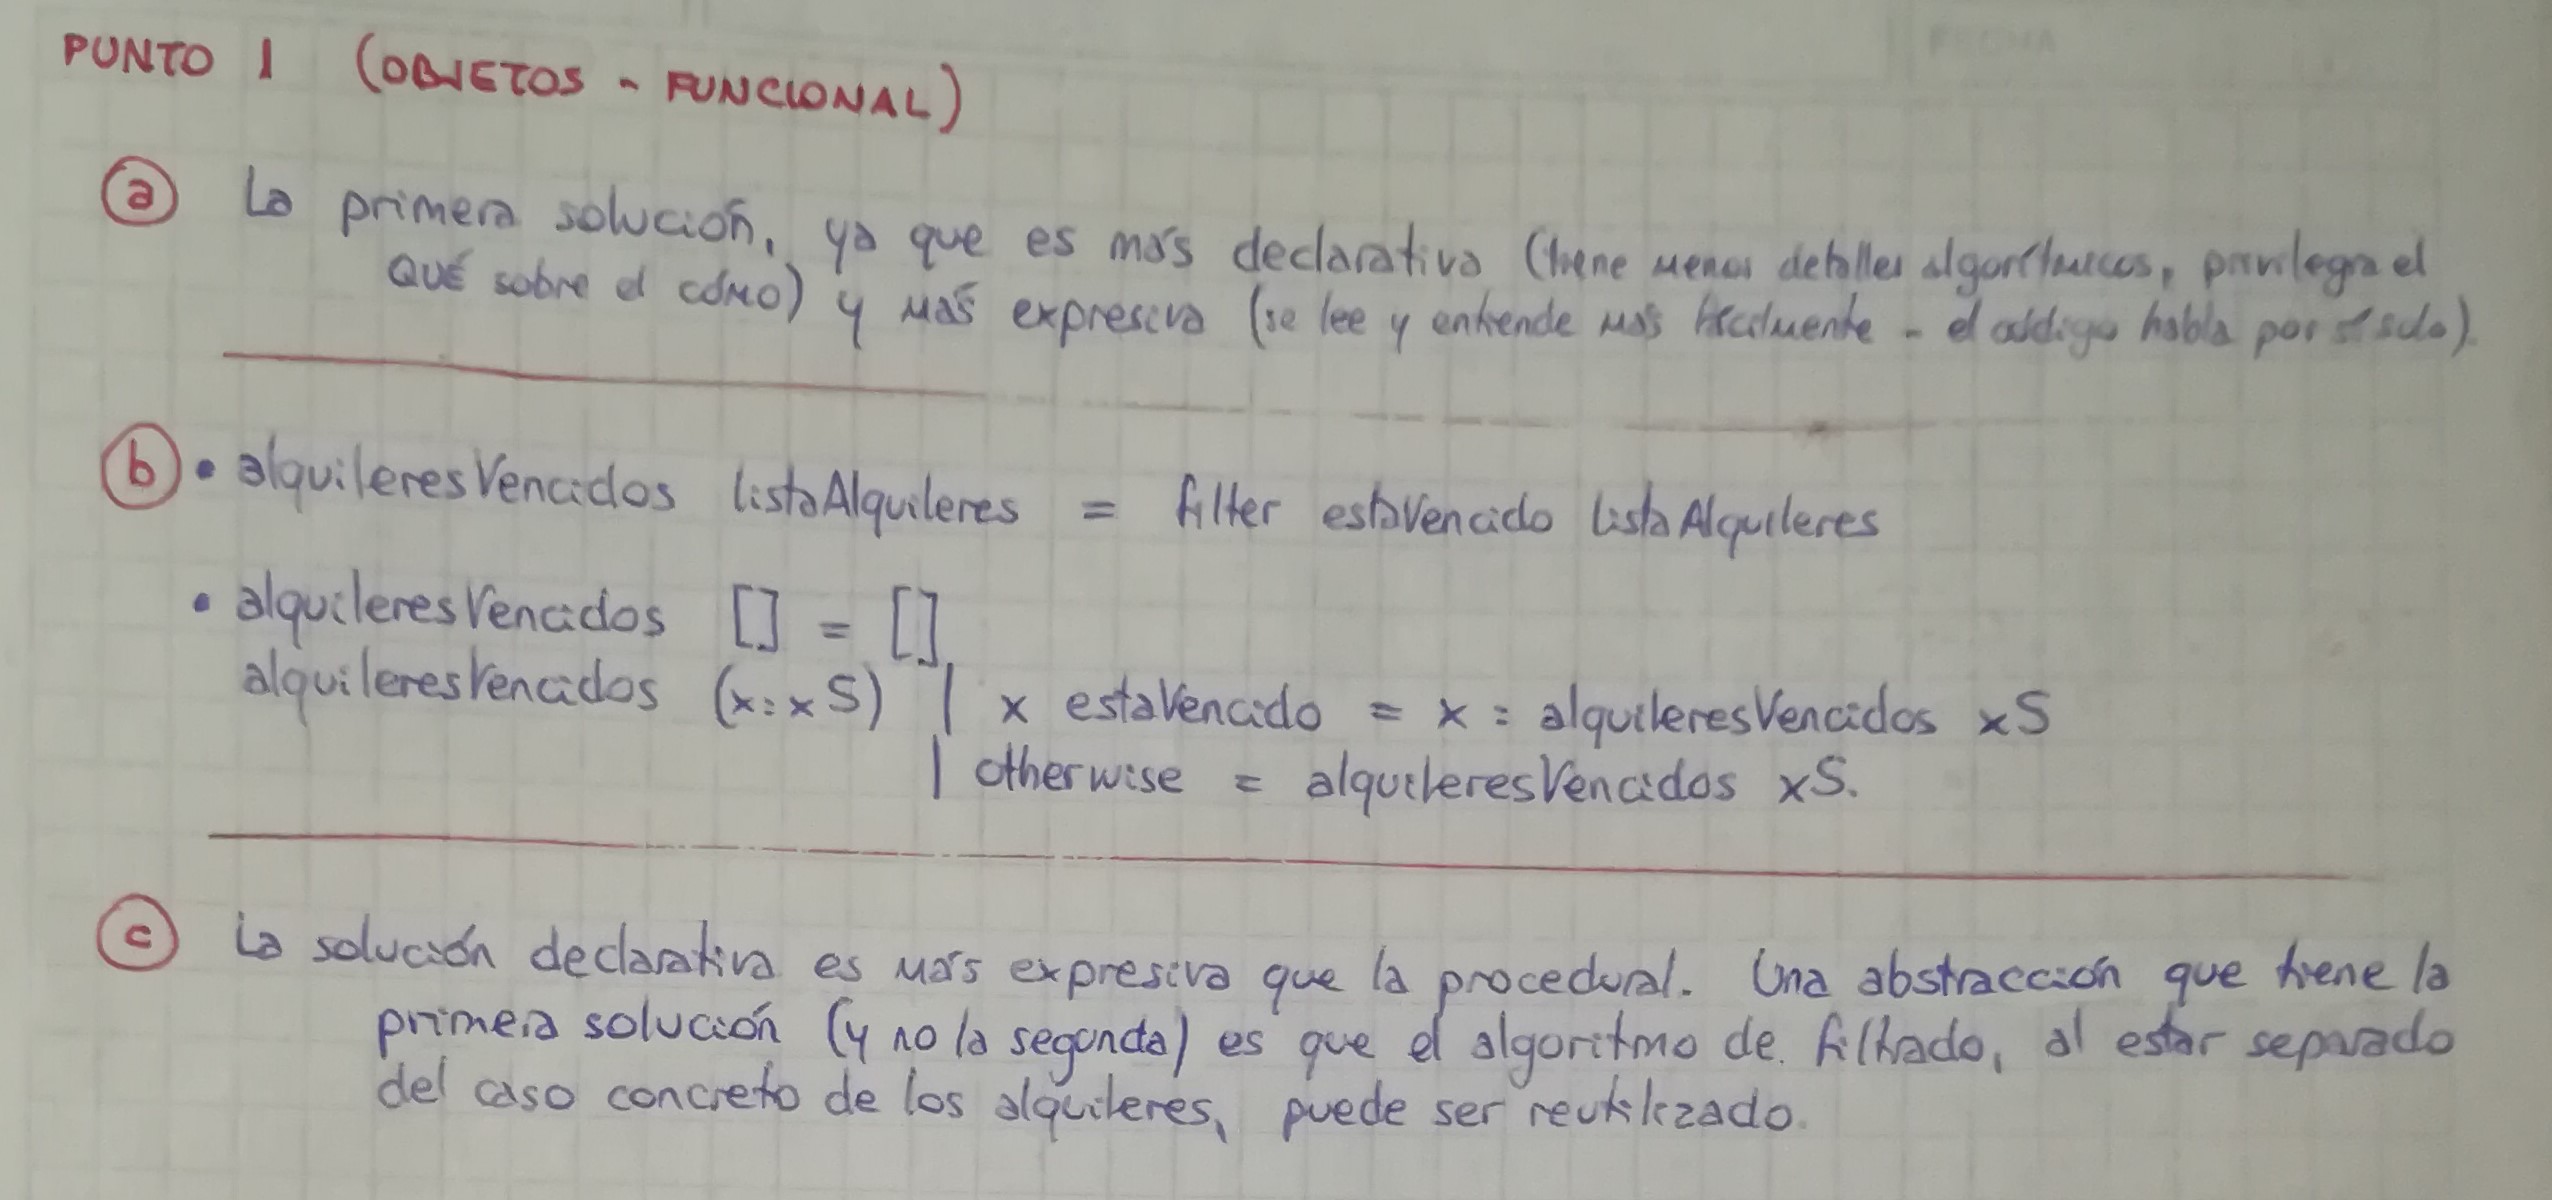 PUNTO 1 (OBJETOS - FUNCIONAL)
a La primera solución, ya que es más declarativa (tiene menos detalles algorítmicos, privilegia el
QUÉ sobre el CÓMO) y más expresiva (se lee y entiende más fácilmente - el código habla por sí solo).
b • alquileresVencidos listaAlquileres = filter estaVencido listaAlquileres
• alquileresVencidos [] = []
alquileresVencidos (x:xS) | x estaVencido = x : alquileresVencidos xS
| otherwise = alquileresVencidos xS.
c La solución declarativa es más expresiva que la procedural. Una abstracción que tiene la
primera solución (y no la segunda) es que el algoritmo de filtrado, al estar separado
del caso concreto de los alquileres, puede ser reutilizado.